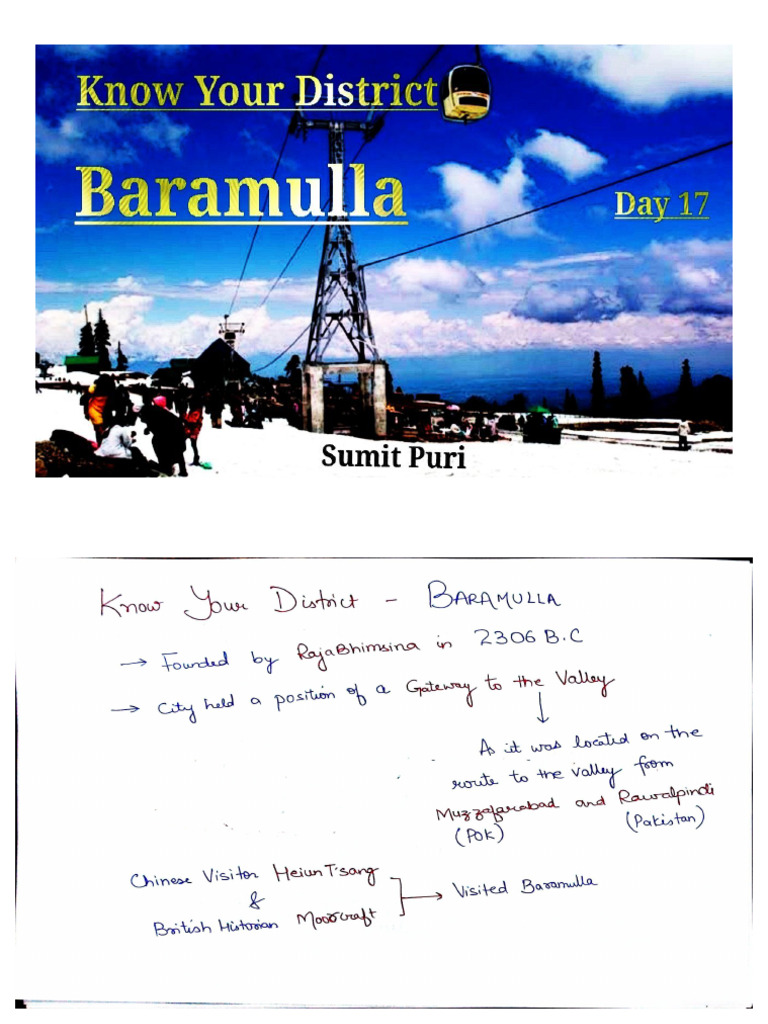 Know Your District
Baramulla
Day 17
Sumit Puri
Know Your District - BARAMULLA
→ Founded by RajaBhimsina in 2306 B.C
→ City held a position of a Gateway to the Valley
As it was located on the
route to the valley from
Muzzafarabad and Rawalpindi
(POK) (Pakistan)
Chinese Visitor HeiunT'sang
&
British Historian Moorcraft
→ Visited Baramulla